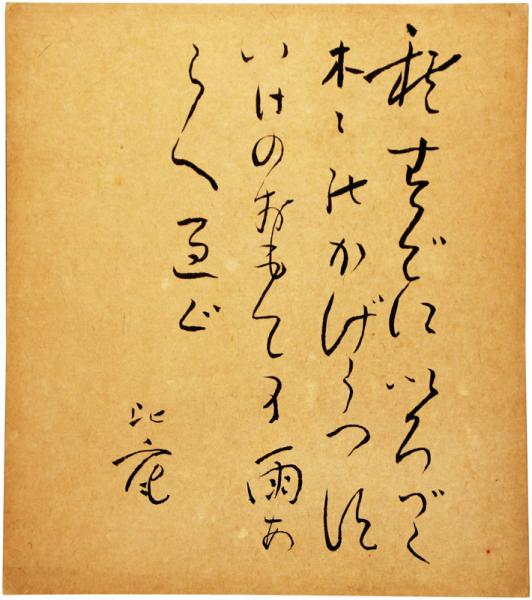 秋すでにいろづく
木ゝのかげうつす
いけのおもてを雨あ
らく過ぐ
比庵